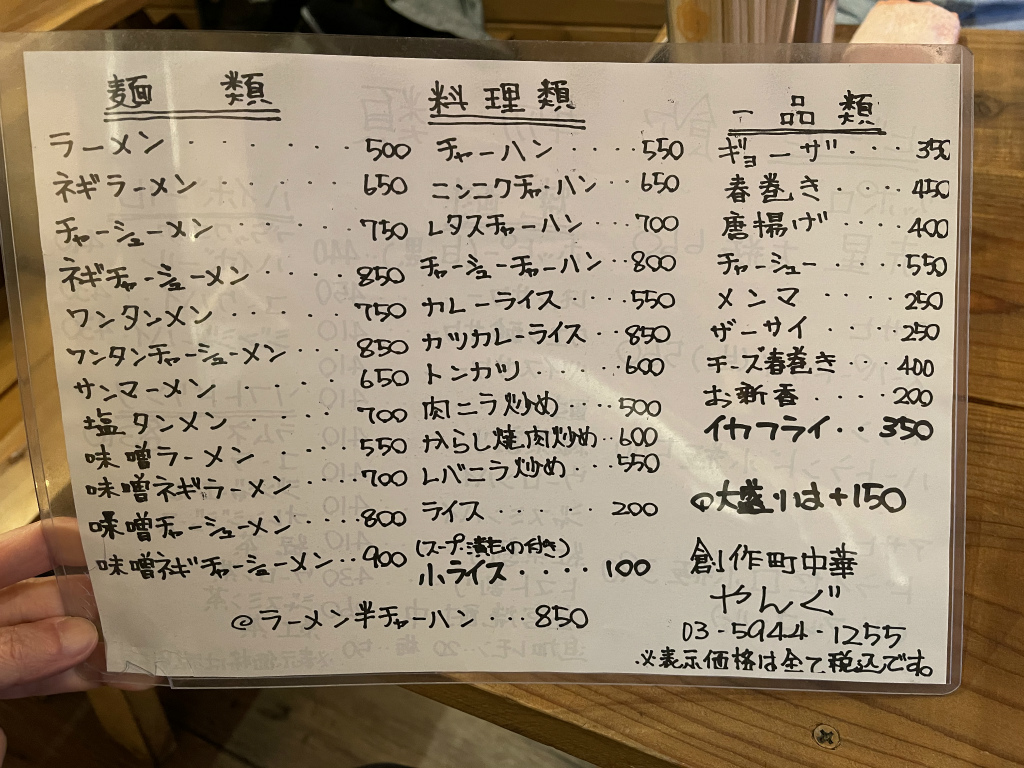 麺類
ラーメン・・・・・・500
ネギラーメン・・・・・650
チャーシューメン・・・・750
ネギチャーシューメン・・・850
ワンタンメン・・・・・750
ワンタンチャーシューメン・・850
サンマーメン・・・・650
塩タンメン・・・・・700
味噌ラーメン・・・・550
味噌ネギラーメン・・・700
味噌チャーシューメン・・・・800
味噌ネギチャーシューメン・・900
料理類
チャーハン・・・・550
ニンニクチャーハン・・650
レタスチャーハン・・・700
チャーシューチャーハン・・800
カレーライス・・・550
カツカレーライス・・850
トンカツ・・・・600
肉ニラ炒め・・・500
からし焼肉炒め・・600
レバニラ炒め・・・550
ライス・・・・・200
(スープ・漬もの付き)
小ライス・・・・100
@ラーメン半チャーハン・・・850
一品類
ギョーザ・・・350
春巻き・・・・450
唐揚げ・・・・400
チャーシュー・・・・550
メンマ・・・・250
ザーサイ・・・・250
チーズ春巻き・・・400
お新香・・・・200
イカフライ・・350
@大盛りは+150
創作町中華
やんぐ
03-5944-1255
※表示価格は全て税込です。